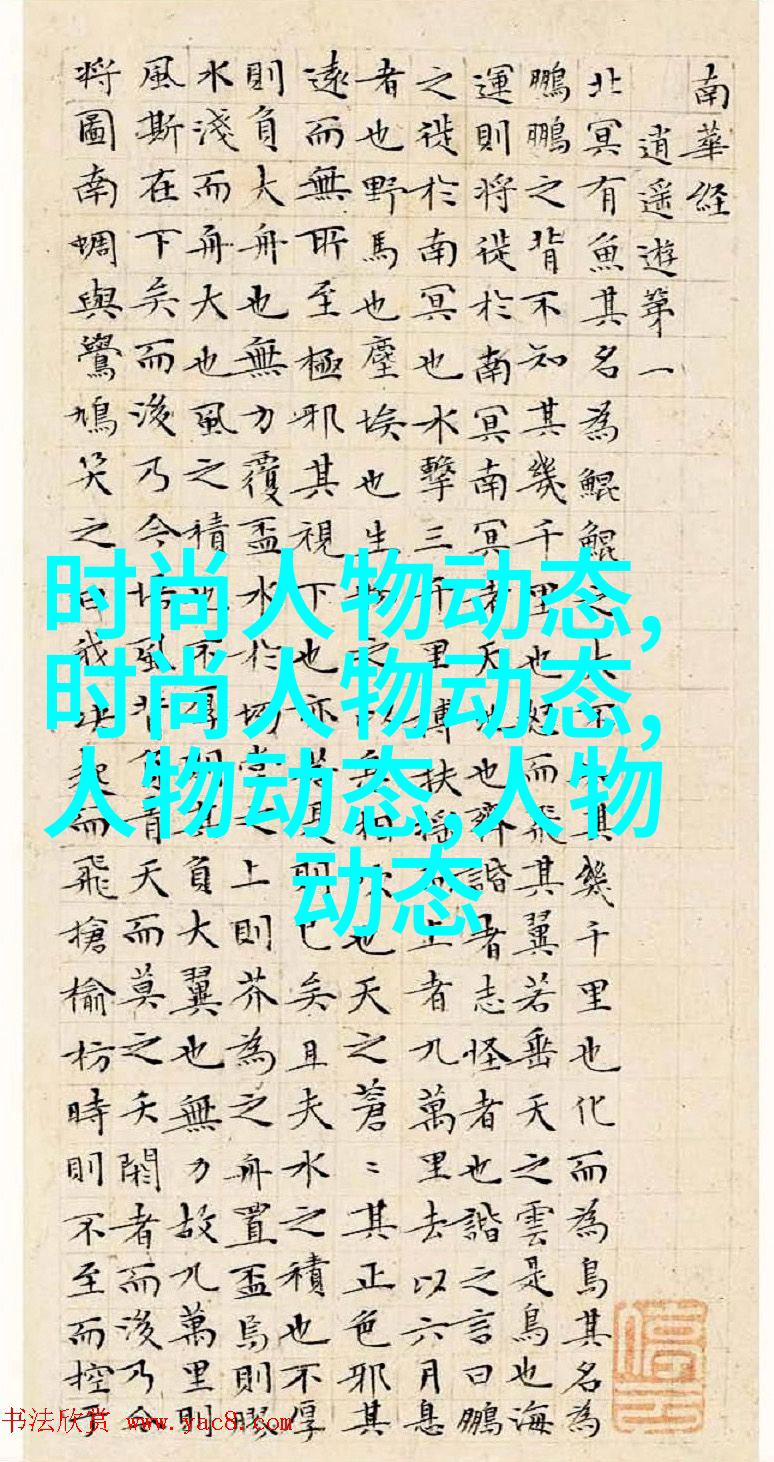 南華経
逍遥遊第一
北冥有魚其名為鯤鯤大不其幾千里也化而為鳥其名為
鵬鵬之背不知其幾千里也怒而飛其翼若垂天之雲是鳥也海
運則将徙於南冥南冥者天也齊諧者志怪者也諧之言曰鵬
之徙於南冥也水擊三千里搏扶而上者九萬里去以六月息
者也野馬也塵埃也生物之以相吹也天之蒼〻其正色邪其
遠而無所至極邪其視下也亦若是則已矣且夫水之積也不厚
則負大舟也無力覆盃水於坳堂之上則芥為之舟置盃焉則膠
水淺而舟大也風之積也不厚則其負大翼也無力故九萬里則
風斯在下矣而後乃今培風背負青天而莫之夭閼者而後乃今
将圖南蜩與鷽鳩笑之曰我決起而飛搶榆枋時則不至而控
时尚人物动态,
时尚人物动态,
人物动态,人物
动态
书法欣赏 www.yac8.com